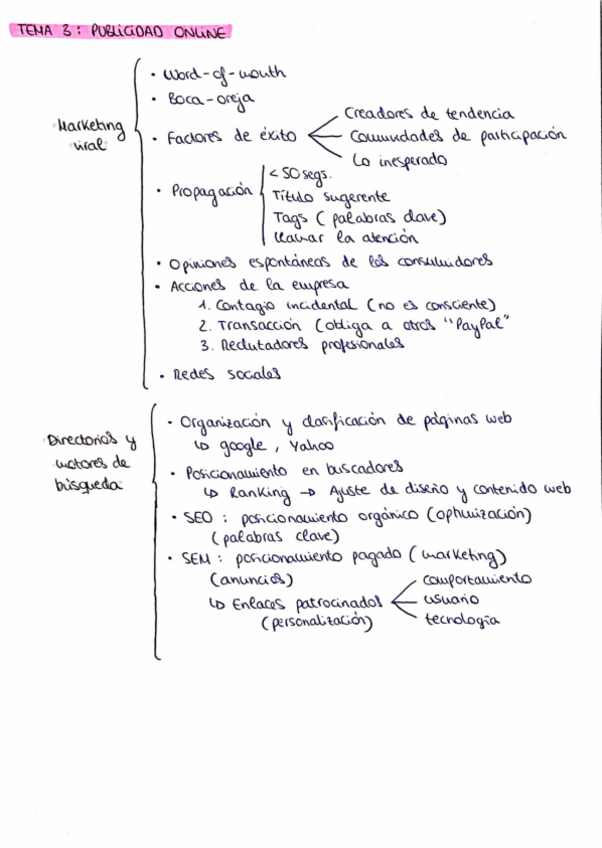 TEMA 3: PUBLICIDAD ONLINE
Marketing viral
• Word-of-mouth
• Boca-oreja
• Factores de éxito
Creadores de tendencia
Comunidades de participación
Lo inesperado
• Propagación
< 50 segs.
Título sugerente
Tags (palabras clave)
Llamar la atención
• Opiniones espontáneas de los consumidores
• Acciones de la empresa
1. Contagio incidental (no es consciente)
2. Transacción (obliga a otros "PayPal"
3. Reclutadores profesionales
• Redes sociales
Directorios y
motores de
búsqueda
• Organización y clasificación de páginas web
↳ google, Yahoo
• Posicionamiento en buscadores
↳ Ranking → Ajuste de diseño y contenido web
• SEO: posicionamiento orgánico (optimización)
(palabras clave)
• SEM: posicionamiento pagado (marketing)
(anuncios)
↳ Enlaces patrocinados
(personalización)
comportamiento
usuario
tecnología